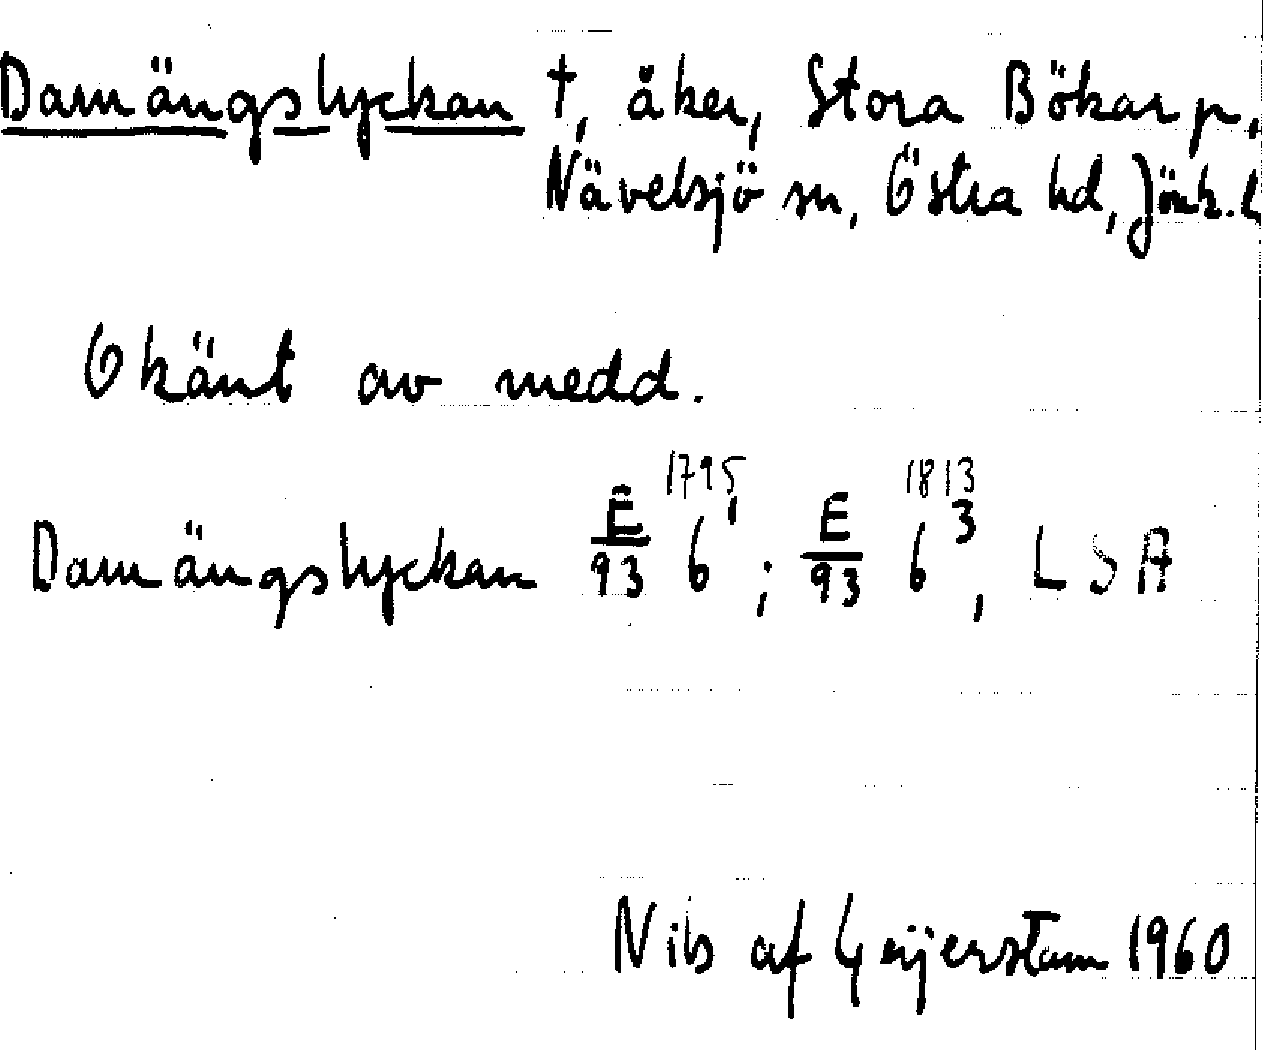 Damängslyckan †, åker, Stora Bökarp,
Nävelsjö sn, Östra hd, Jönk. l
Okänt av medd.
1795 1813
Damängslyckan E/93 6 1; E/93 6 3, LSA
Nils af Geijerstam 1960